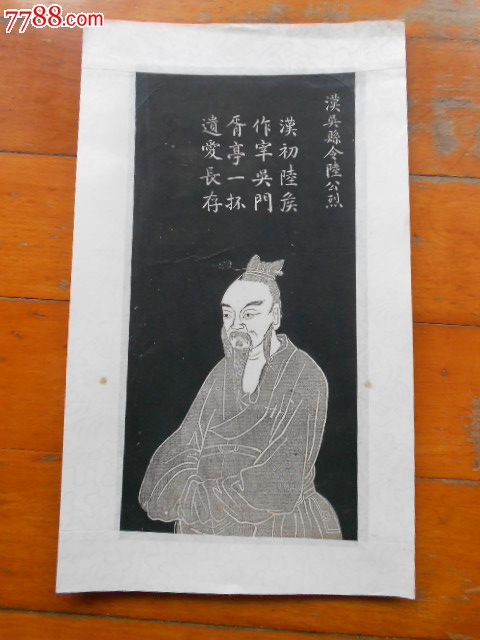 7788.com
漢吳縣令陸公烈
漢初陸矦
作宰吳門
胥亭一抔
遺愛長存